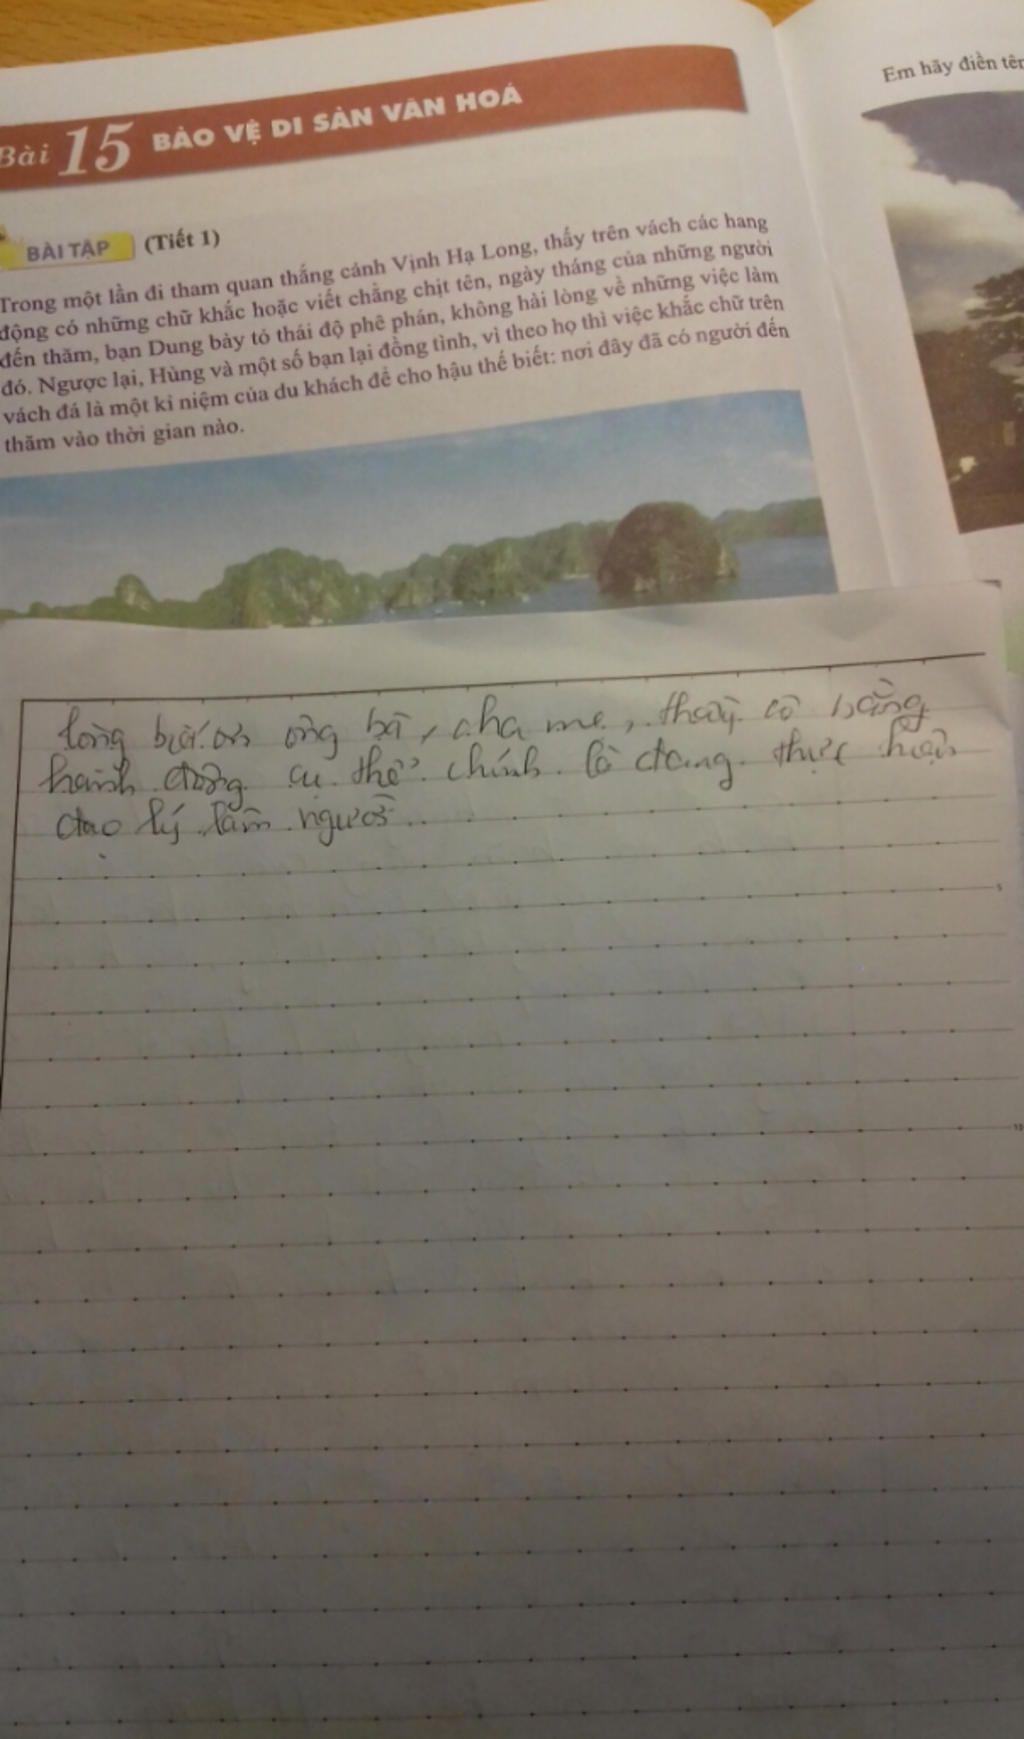 Bài 15 BẢO VỆ DI SẢN VĂN HOÁ
BÀI TẬP (Tiết 1)
Trong một lần đi tham quan thắng cảnh Vịnh Hạ Long, thấy trên vách các hang
động có những chữ khắc hoặc viết chằng chịt tên, ngày tháng của những người
đến thăm, bạn Dung bày tỏ thái độ phê phán, không hài lòng về những việc làm
đó. Ngược lại, Hùng và một số bạn lại đồng tình, vì theo họ thì việc khắc chữ trên
vách đá là một kỉ niệm của du khách để cho hậu thế biết: nơi đây đã có người đến
thăm vào thời gian nào.
Em hãy điền tên
lòng biết ơn ông bà, cha mẹ, thầy cô bằng
hành động cụ thể chính là đang thực hiện
đạo lý làm người.
5
10